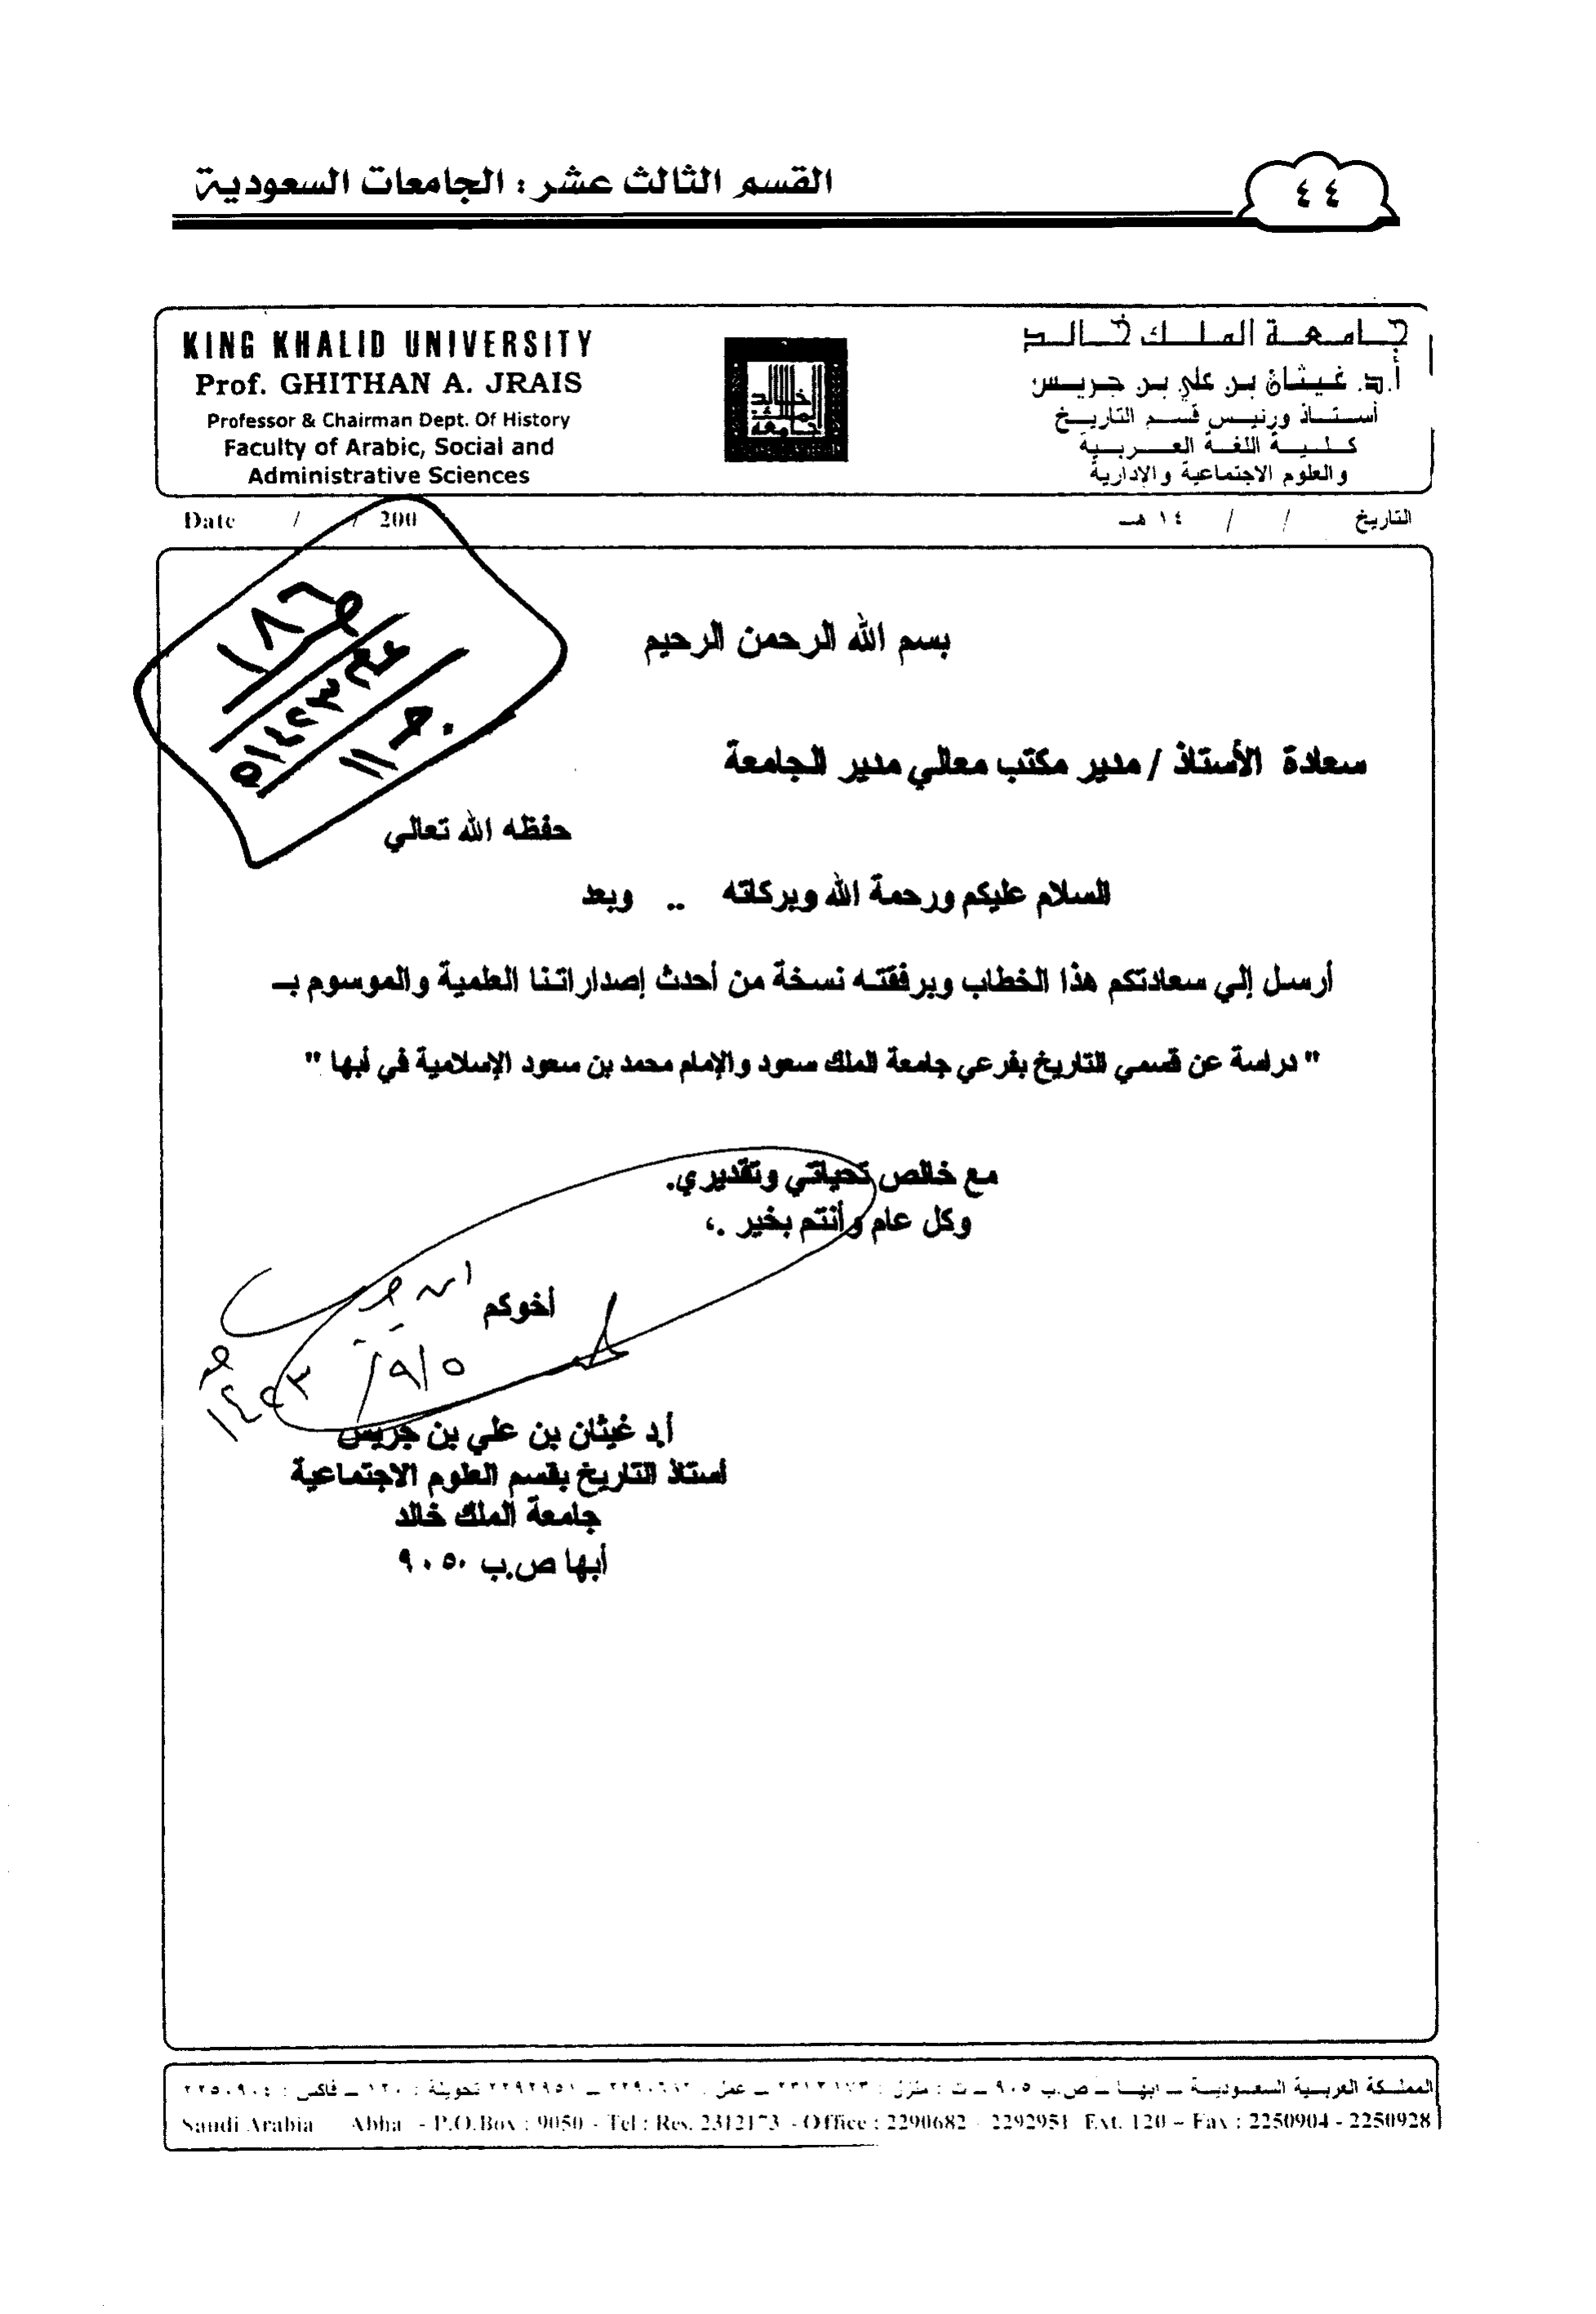 القسم الثالث عشر : الجامعات السعودية
٤٤
KING KHALID UNIVERSITY
Prof. GHITHAN A. JRAIS
Professor & Chairman Dept. Of History
Faculty of Arabic, Social and
Administrative Sciences
جامعة الملك خالد
جامعة الملك خالد
أ.د. غيثان بن علي بن جريس
أستاذ ورئيس قسم التاريخ
كلية اللغة العربية
والعلوم الاجتماعية والإدارية
Date / / 200
التاريخ / / ١٤ هـ
١٨٦
١٤٢٣هـ
ج١١
بسم الله الرحمن الرحيم
سعادة الأستاذ / مدير مكتب معالي مدير الجامعة
حفظه الله تعالي
السلام عليكم ورحمة الله وبركاته .. وبعد
أرسل إلي سعادتكم هذا الخطاب وبرفقته نسخة من أحدث إصداراتنا العلمية والموسوم بـ
" دراسة عن قسمي التاريخ بفرعي جامعة الملك سعود والإمام محمد بن سعود الإسلامية في أبها "
مع خالص تحياتي وتقديري.
وكل عام وأنتم بخير .،
أخوكم
٥/٩/
١٤٢٣هـ
أ.د غيثان بن علي بن جريس
أستاذ التاريخ بقسم العلوم الاجتماعية
جامعة الملك خالد
أبها ص.ب ٩٠٥٠
المملكة العربية السعودية – ابها – ص.ب ٩٠٥ – ت : منزل : ٢٣١٢١٧٣ – عمل : ٢٢٩٠٦٨٢ – ٢٢٩٢٩٥١ تحويلة : ١٢٠ – فاكس : ٢٢٥٠٩٠٤
Saudi Arabia Abha - P.O.Box : 9050 - Tel : Res. 2312173 - Office : 2290682 - 2292951 Ext. 120 – Fax : 2250904 - 2250928